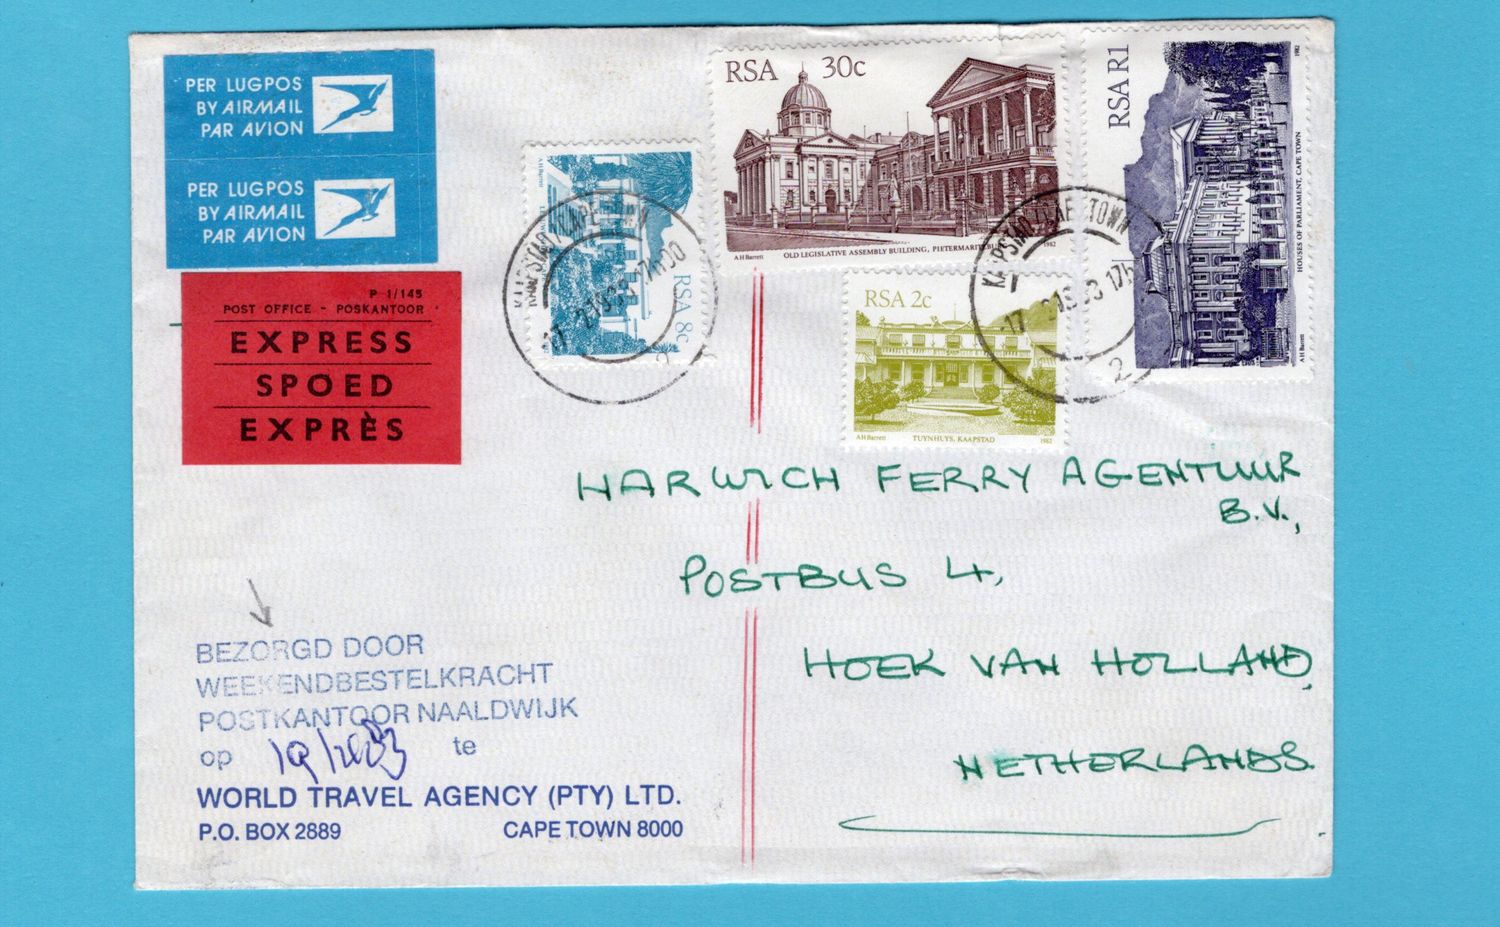 PER LUGPOS
BY AIRMAIL
PAR AVION
PER LUGPOS
BY AIRMAIL
PAR AVION
P 1/145
POST OFFICE - POSKANTOOR
EXPRESS
SPOED
EXPRÈS
A H Barrett
RSA 8c
KAAPSTAD CAPE TOWN
17 2 1983 17h00
2
RSA 30c
A H Barrett
OLD LEGISLATIVE ASSEMBLY BUILDING,
1982
RSA 2c
A H Barrett
TUYNHUYS, KAAPSTAD
1982
KAAPSTAD CAPE TOWN
2
RSA R1
1982
HOUSES OF PARLIAMENT, CAPE TOWN
A H Barrett
HARWICH FERRY AGENTUUR
B.V.,
POSTBUS 4,
HOEK VAN HOLLAND,
NETHERLANDS.
BEZORGD DOOR
WEEKENDBESTELKRACHT
POSTKANTOOR NAALDWIJK
op te
WORLD TRAVEL AGENCY (PTY) LTD.
P.O. BOX 2889 CAPE TOWN 8000